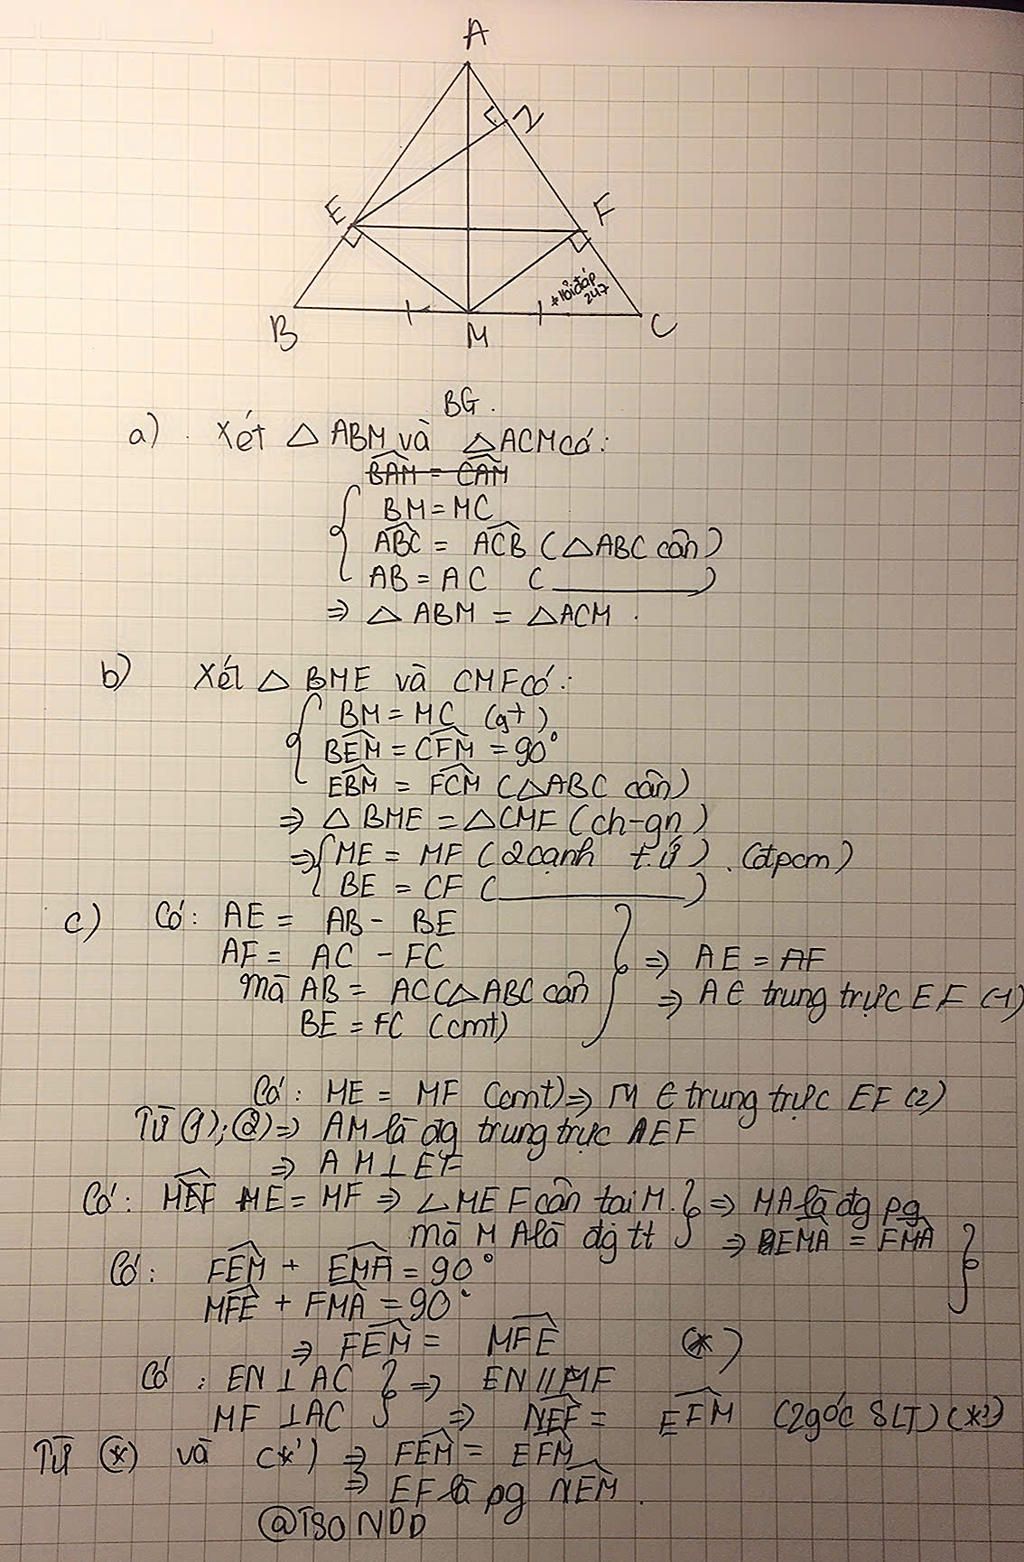 A
N
E
F
*Hỏi đáp
247
B
M
C
BG.
a) . Xét △ ABM và △ACM có:
BAM = CAM
BM = MC
ABC = ACB (△ABC cân)
AB = AC (________)
⇒ △ ABM = △ACM .
b) Xét △ BME và CMF có:
BM = MC (gt)
BEM = CFM = 90°
EBM = FCM (△ABC cân)
⇒ △ BME = △CMF (ch-gn)
⇒ ME = MF (2 cạnh t.ứ) . (đpcm)
BE = CF (________)
c) Có: AE = AB - BE
AF = AC - FC ⇒ AE = AF
mà AB = AC (△ABC cân ⇒ A ∈ trung trực EF (1)
BE = FC (cmt)
Có: ME = MF (cmt) ⇒ M ∈ trung trực EF (2)
Từ (1); (2) ⇒ AM là đg trung trực AEF
⇒ AM ⊥ EF
Có: MEF ME = MF ⇒ △ MEF cân tại M. ⇒ MA là đg pg
mà MA là đg tt ⇒ EMA = FMA
Có: FEM + EMA = 90°
MFE + FMA = 90°
⇒ FEM = MFE (*)
Có : EN ⊥ AC ⇒ EN // MF
MF ⊥ AC ⇒ NEF = EFM (2 góc SLT) (*')
Từ (*) và (*') ⇒ FEM = EFM
⇒ EF là pg NEM .
@TSONDD